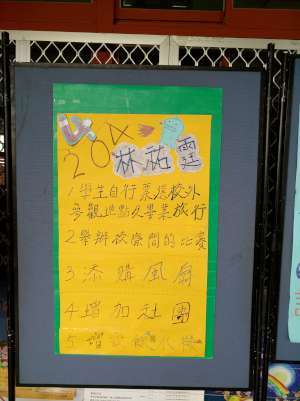 204
林祐霆
1 學生自行票選校外
參觀地點及畢業旅行
2 舉辦校際間的比賽
3 添購風扇
4 增加社團
5 增設飲水機